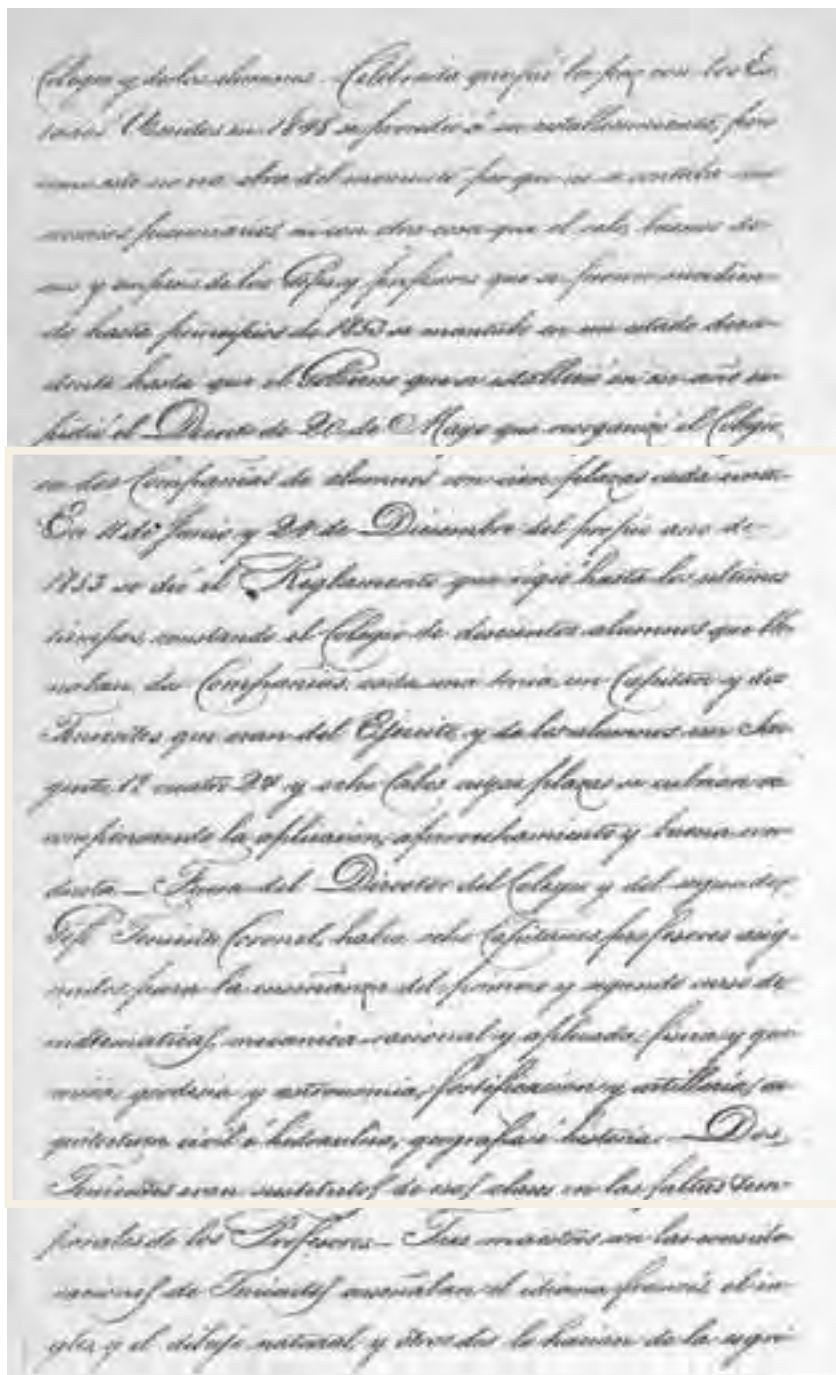 Colegio y de los alumnos. Celebrada que fué la paz con los Es-
tados Unidos en 1848 se procedió á su restablecimiento, pero
como esto no era obra del momento porque no se contaba con
recursos pecuniarios, ni con otra cosa que el celo, buenos de-
seos y empeño de los Gefes y profesores que se fueron
hasta principios de 1853 se mantubo en un estado
hasta que el Gobierno que se estableció en ese año es-
pidió el Decreto de 20 de Mayo que reorganizó el Colegio
en dos Compañias de alumnos con cien plazas cada una.
En 11 de Junio y 24 de Diciembre del propio año de
1853 se dió el Reglamento que rigió hasta los ultimos
tiempos, constando el Colegio de doscientos alumnos que lle-
naban dos Compañias, cada una tenia un Capitan y dos
Tenientes que eran del Ejército y de los alumnos un Sar-
gento 1º cuatro 2os y ocho Cabos cuyas plazas se cubrian re-
compensando la aplicacion, aprovechamiento y buena con-
ducta.— Fuera del Director del Colegio y del segundo
Gefe Teniente Coronel, habia ocho Capitanes profesores asig-
nados para la enseñanza del primero y segundo curso de
matematicas, mecanica racional y aplicada, fisica y qui-
mica, geodesia y astronomia, fortificacion y artilleria, ar-
quitectura civil é hidraulica, geografia é historia.— Dos
Tenientes eran sustitutos de esas clases en las faltas tem-
porales de los Profesores.— Tres maestros con las conside-
raciones de Tenientes enseñaban el idioma francés, el in-
gles, y el dibujo natural, y otros dos lo hacian de la esgri-